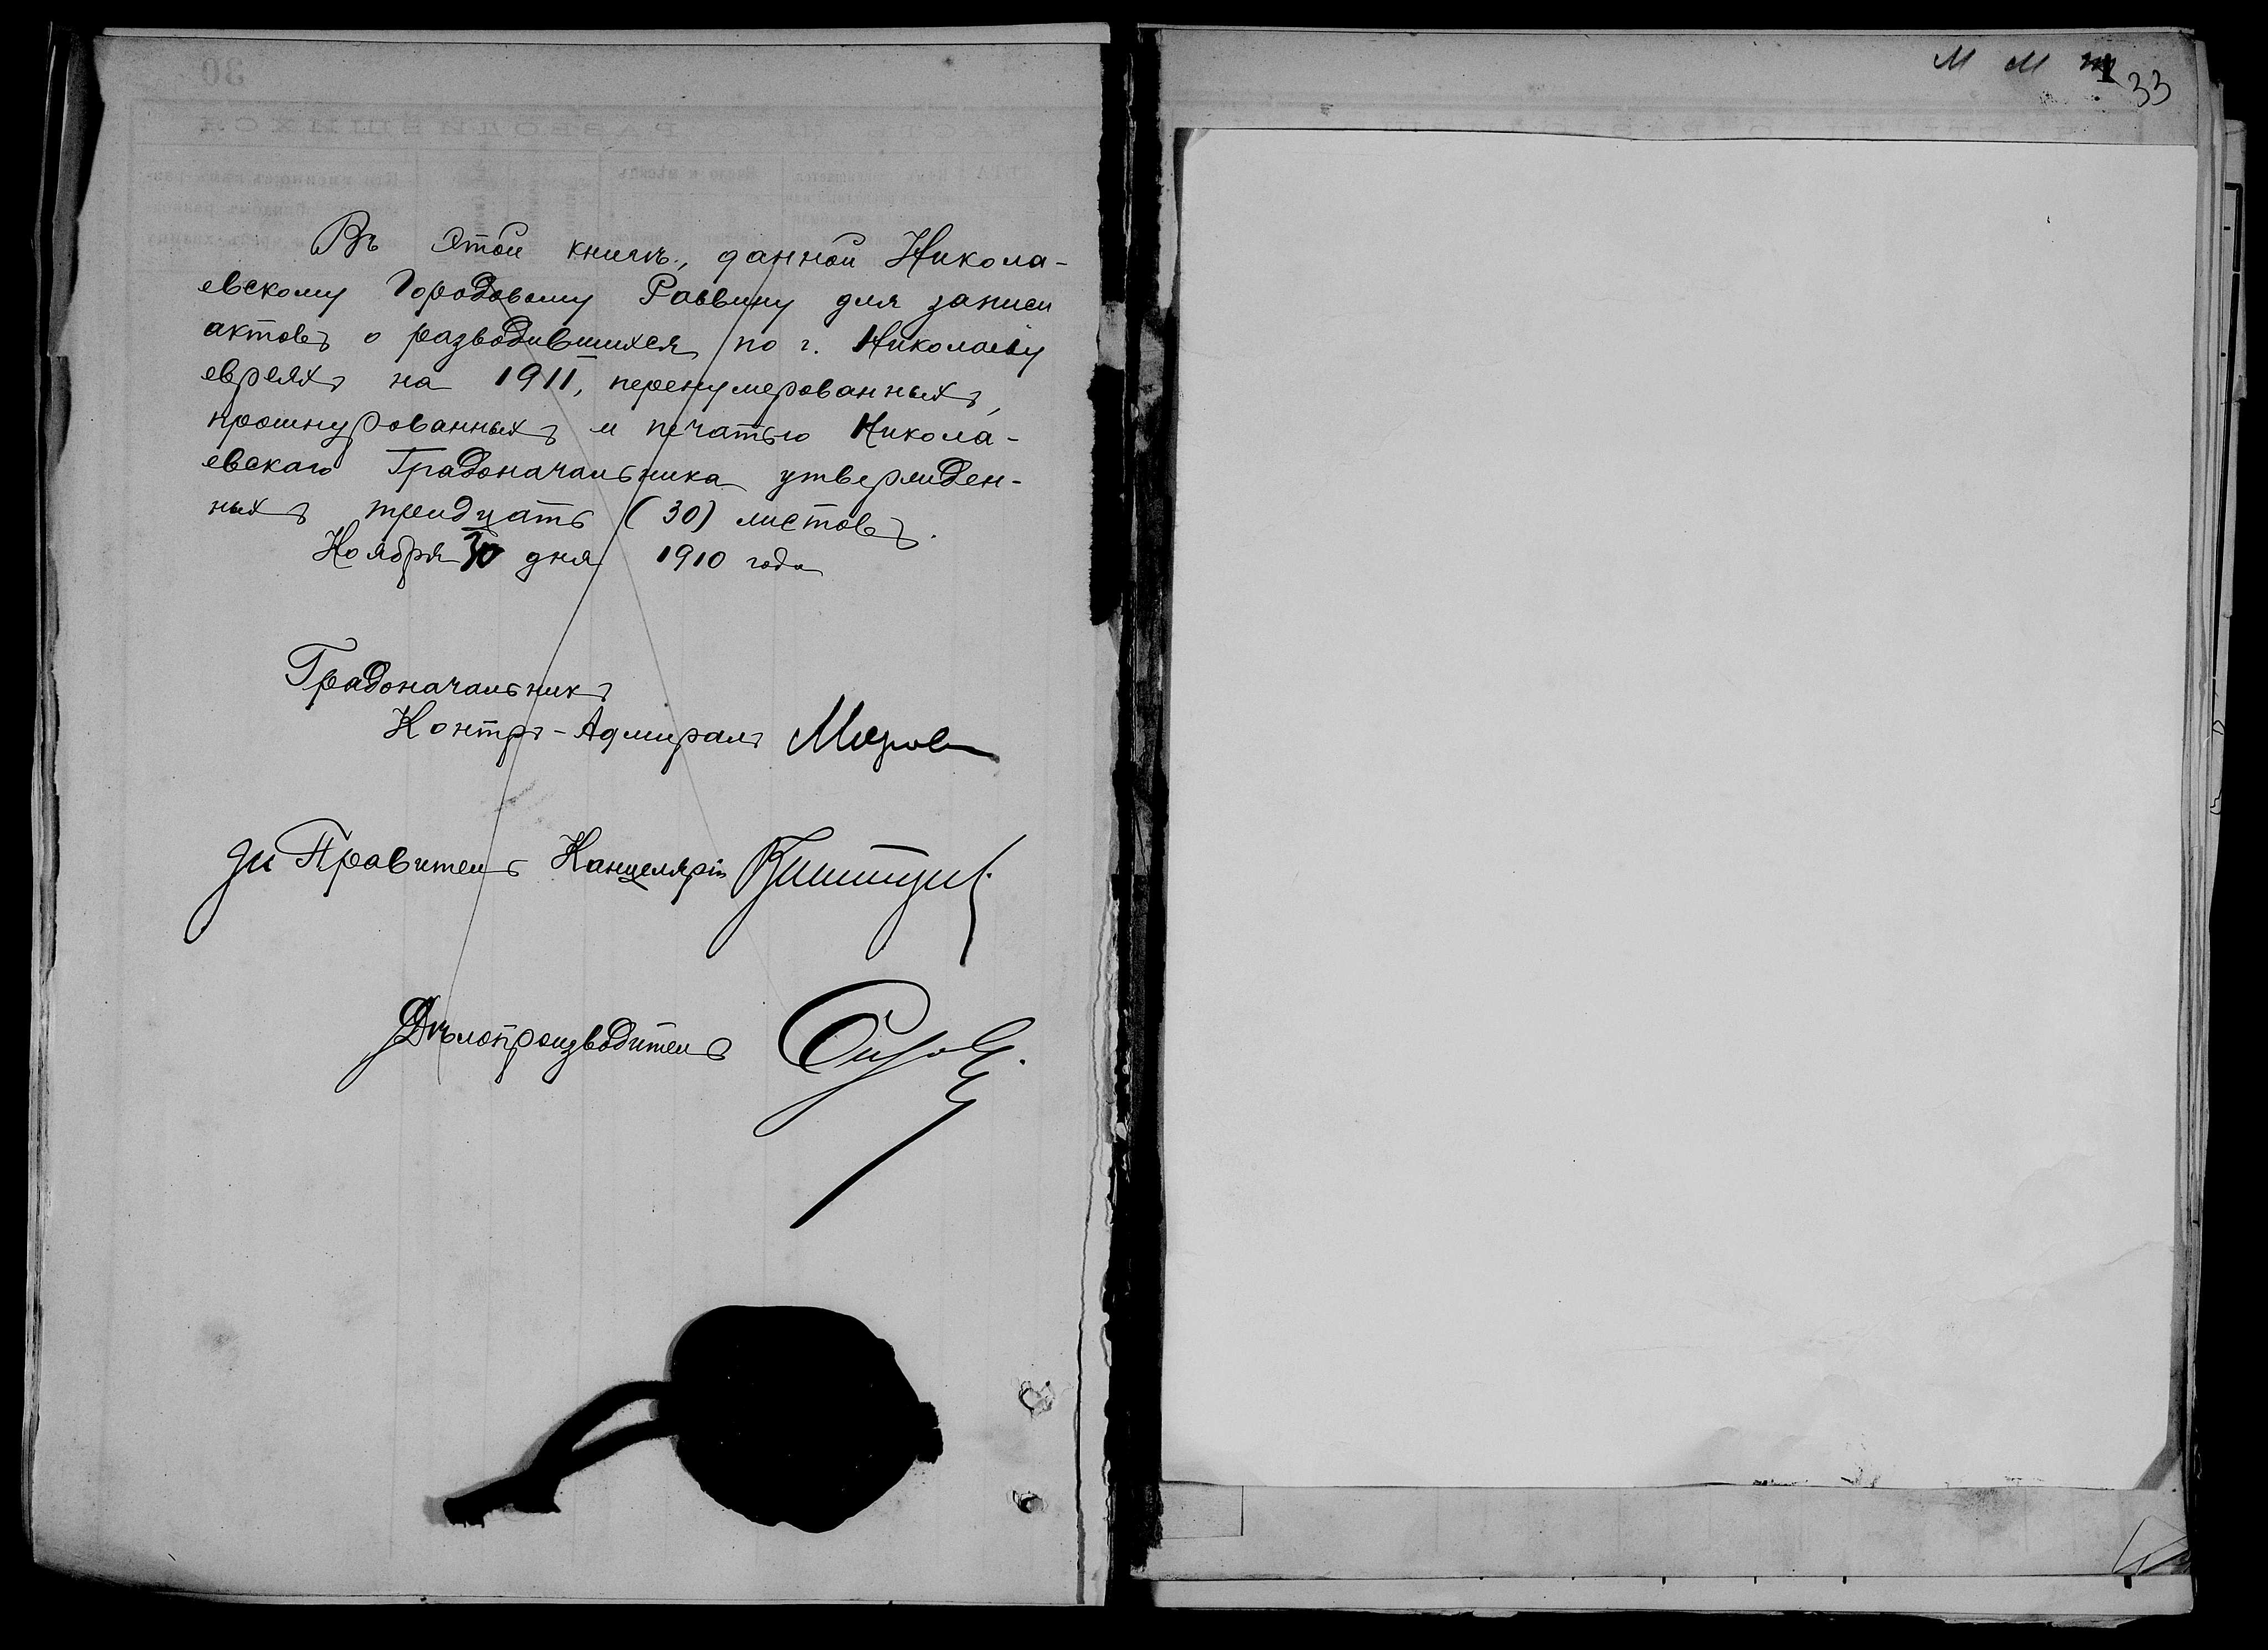 Въ этой книгѣ, данной Никола-
евскому Городовому Раввину для записи
актовъ о разводившихся по г. Николаеву
евреяхъ на 1911, перенумерованныхъ,
прошнурованныхъ и печатью Никола-
евскаго Градоначальника утвержден-
ныхъ тридцать (30) листовъ.
Ноября 30 дня 1910 года
Градоначальникъ
Контръ-Адмиралъ
ди Правитель Канцеляріи
Дѣлопроизводитель
М М
33
30
РАЗВОДИВШИХСЯ